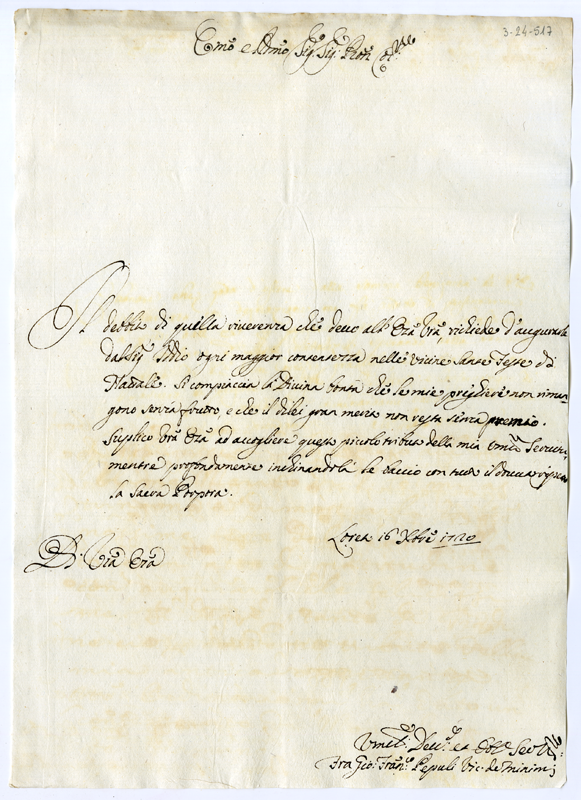 3-24-517
Emo e Rmo Sig.r Sig.r Pron Col.mo
Il debito di quella riverenza che devo all' Emã Vrã, richiede d'augurarle
dal Sig.r Iddio ogni maggior contentezza nelle vicine Sante Feste di
Nadale. Si compiaccia la Divina bontà che le mie preghiere non riman-
gono senza frutto, e che il di lei gran merito non resta senza premio.
Suplico Vrã Emã ad accogliere questo piccolo tributo della mia umil Servitù,
mentre profondamente inchinandola le baccio con tutto il dovuto rispetto
la Sacra Porpora.
Loreto 16 Xbre 1720
D. Vrã Emã
Umil.o Dev.o et Obl.o Ser.
Fra Gio: Fran.o Pepuli Vic. de Minimi